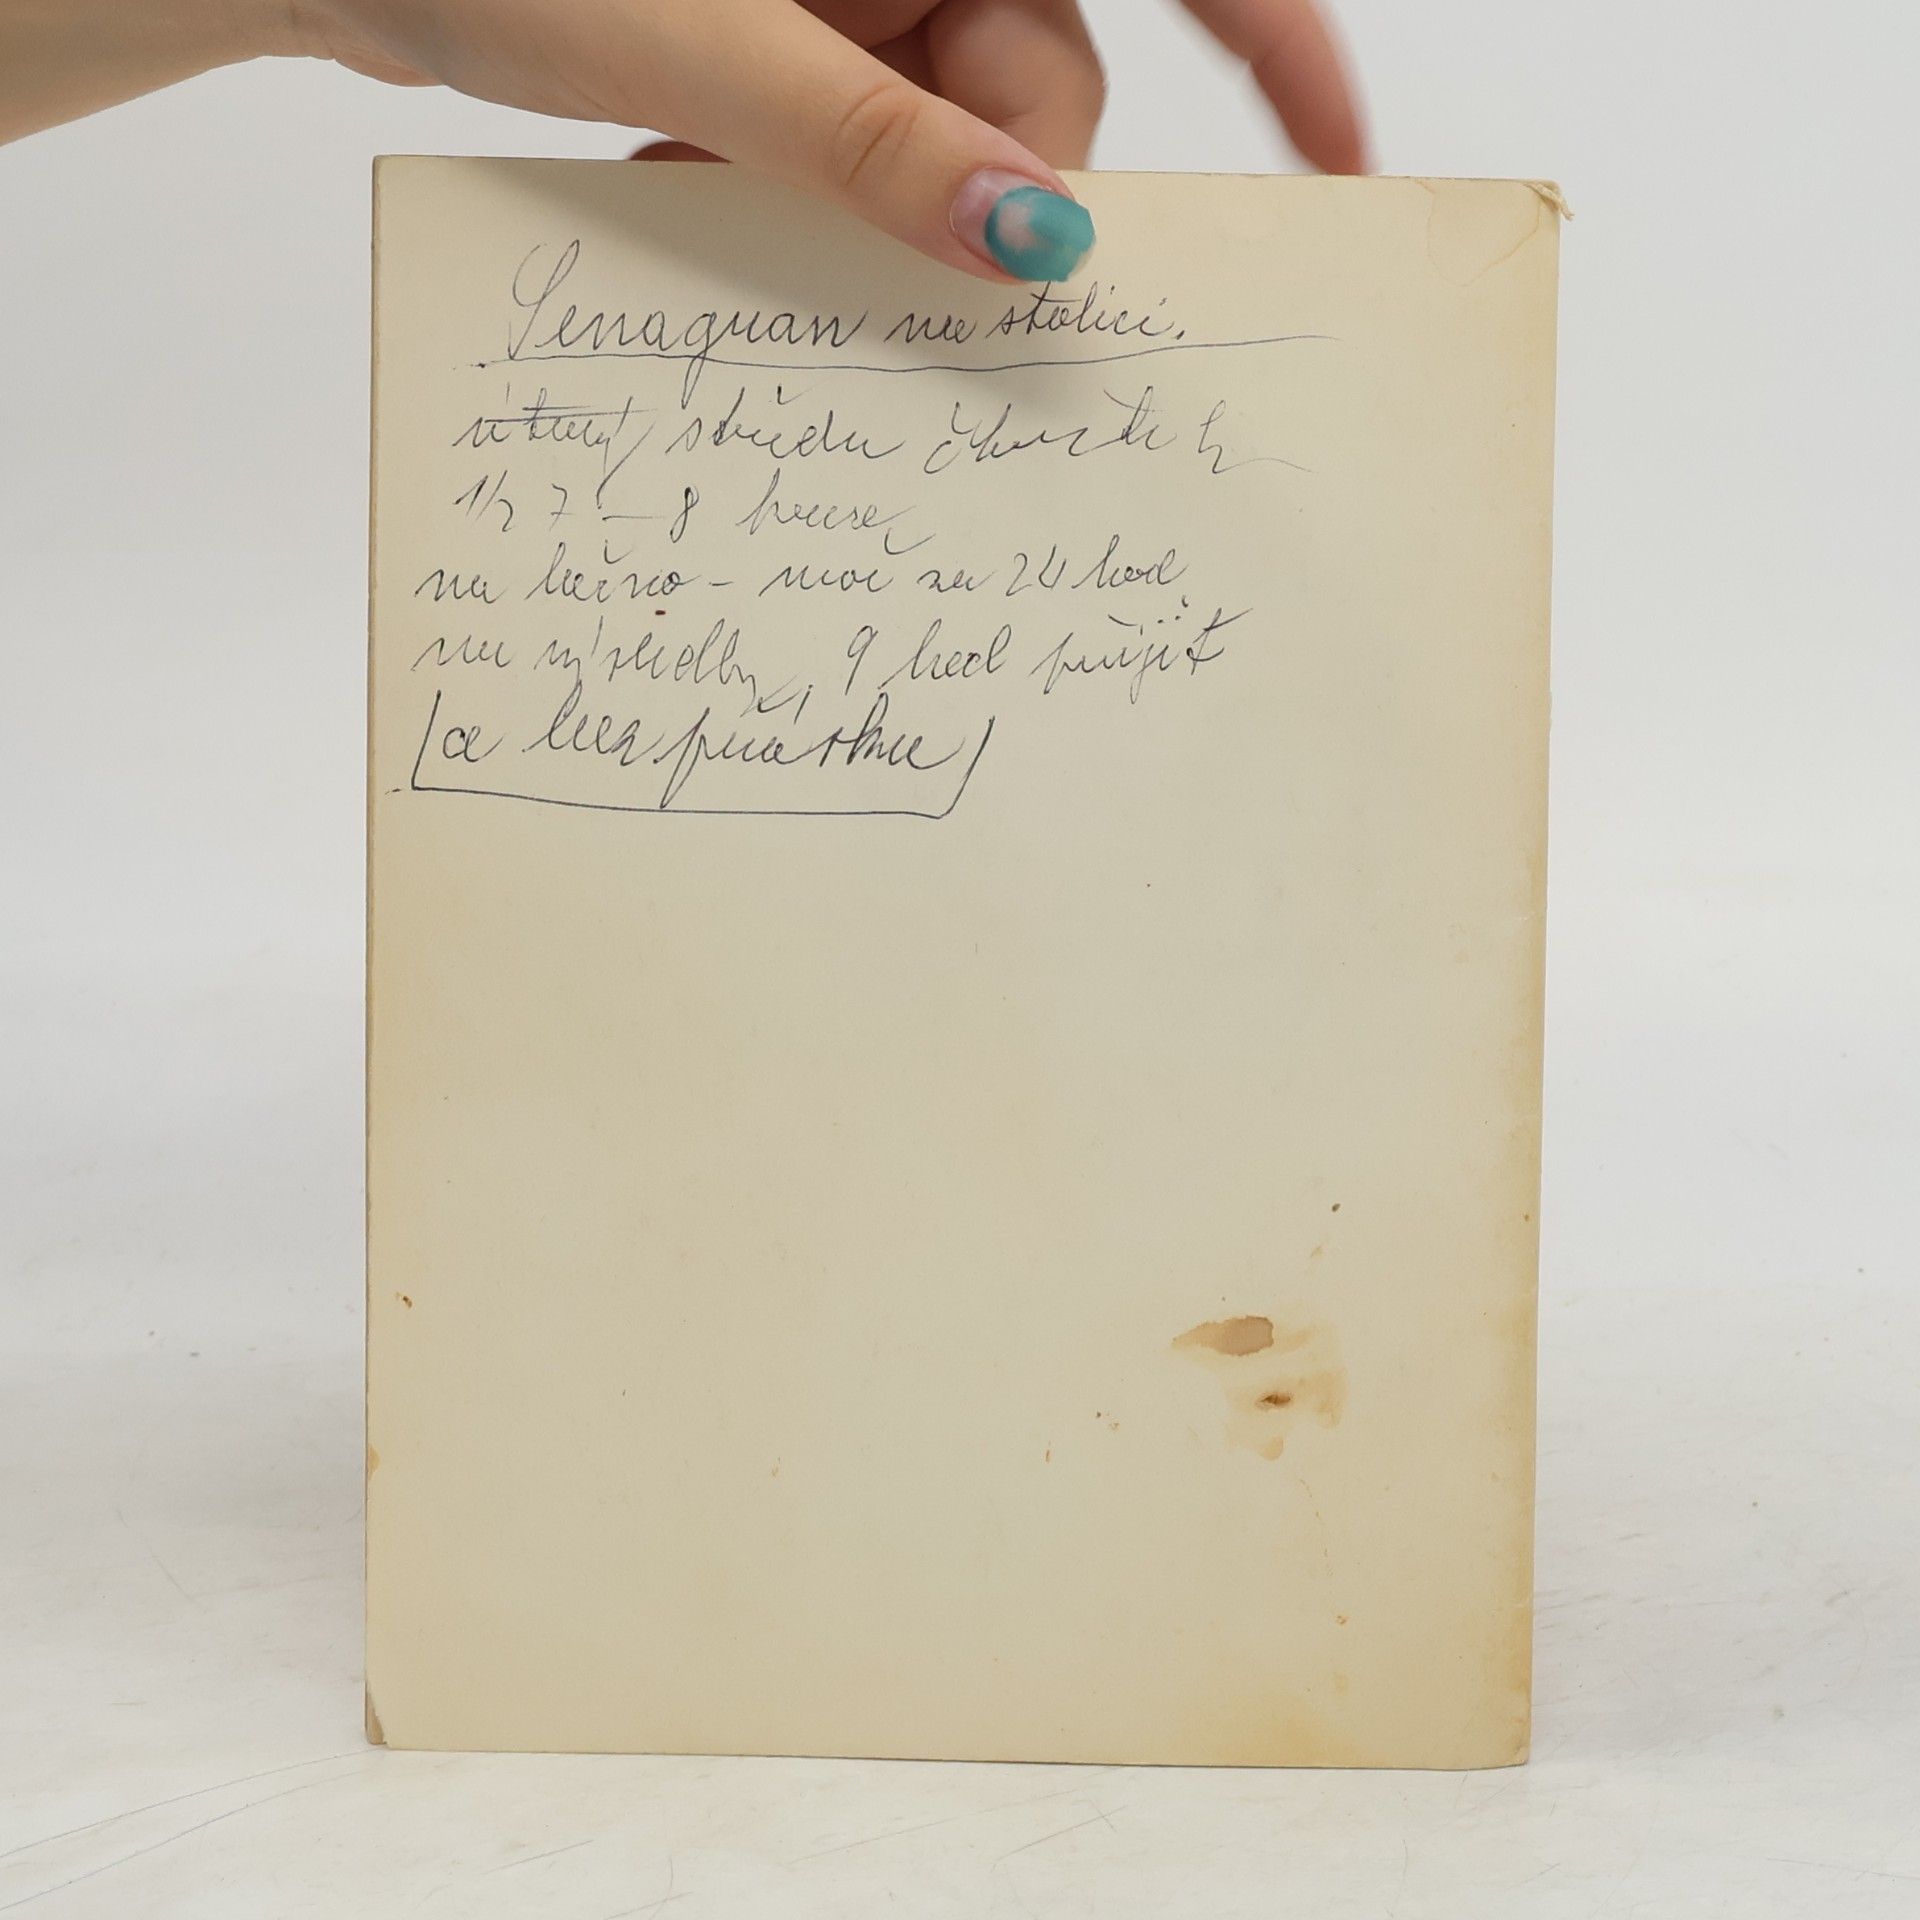 Senaguan na stolici.
úterý středu čtvrtek
1/2 7 – 8 hour
na lačno – moč za 24 hod
na výsledky, 9 hod přijít
(a bez prášku)